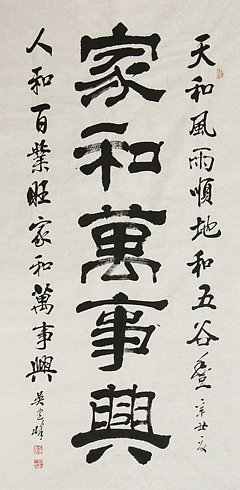 天和風雨順地和五谷登
家和萬事興
人和百業旺家和萬事興